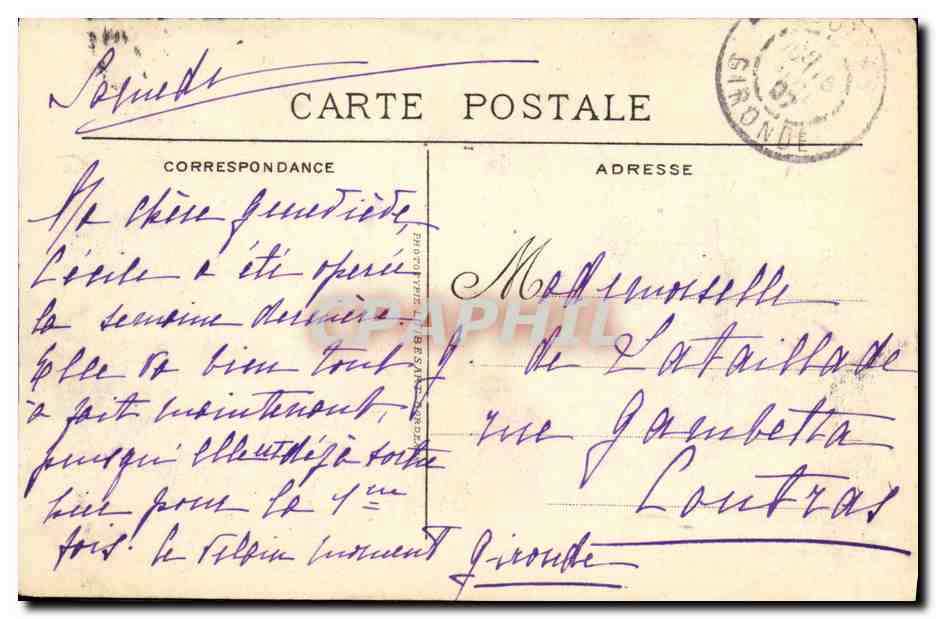 Samedi
CARTE POSTALE
CORRESPONDANCE
Ma chère Geneviève,
Cécile a été opérée
la semaine dernière.
Elle va bien tout
à fait maintenant,
puisqu'elle est déjà sortie
hier pour la 1ère
fois. Le vilain moment
PHOTOTYPIE
BORDEAUX
ADRESSE
Mademoiselle
G. de Lataillade
rue Gambetta
Coutras
Gironde
GIRONDE
CPAPHIL